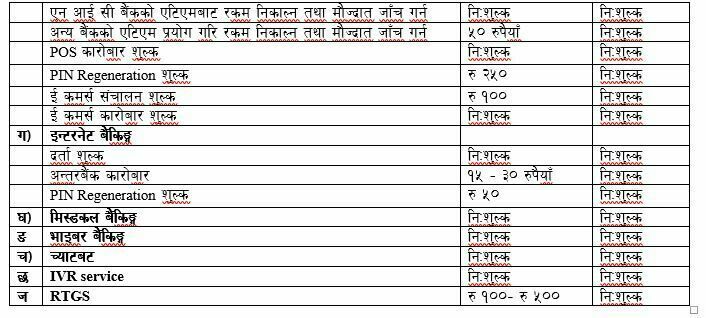 एन आई सी बैंकको एटिएमबाट रकम निकाल्न तथा मौज्दात जाँच गर्न नि:शुल्क नि:शुल्क
अन्य बैंकको एटिएम प्रयोग गरि रकम निकाल्न तथा मौज्दात जाँच गर्न ५० रुपैयाँ नि:शुल्क
POS कारोबार शुल्क नि:शुल्क नि:शुल्क
PIN Regeneration शुल्क रु २५० नि:शुल्क
ई कमर्स संचालन शुल्क रु १०० नि:शुल्क
ई कमर्स कारोबार शुल्क नि:शुल्क नि:शुल्क
ग) इन्टरनेट बैंकिङ्ग
दर्ता शुल्क नि:शुल्क नि:शुल्क
अन्तरबैंक कारोबार १५ - ३० रुपैयाँ नि:शुल्क
PIN Regeneration शुल्क रु ५० नि:शुल्क
घ) मिस्डकल बैंकिङ्ग नि:शुल्क नि:शुल्क
ङ भाइबर बैंकिङ्ग नि:शुल्क नि:शुल्क
च) च्याटबट नि:शुल्क नि:शुल्क
छ IVR service नि:शुल्क नि:शुल्क
ज RTGS रु १००- रु ५०० नि:शुल्क